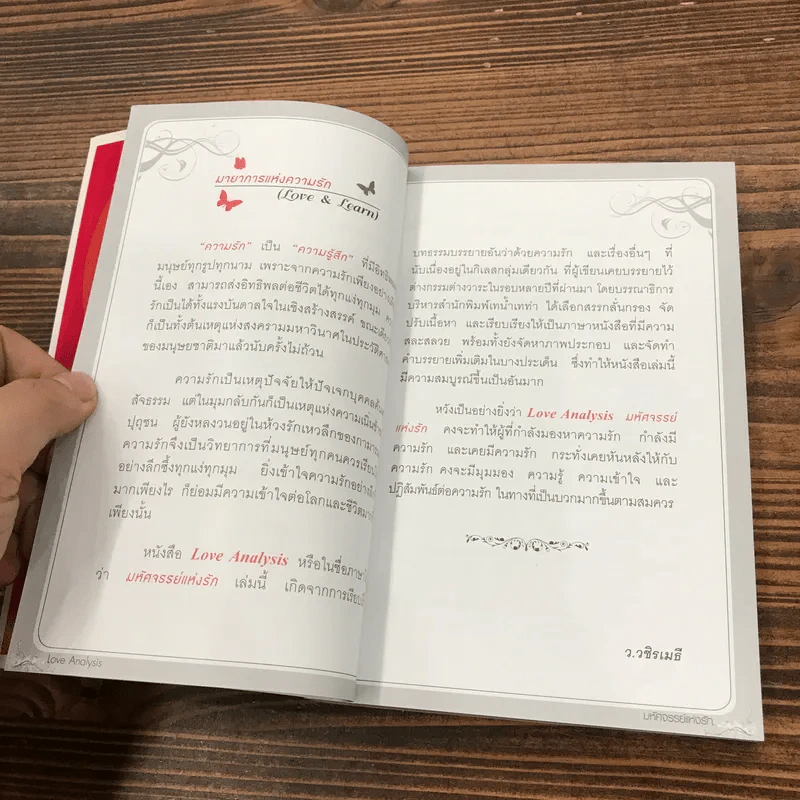 มายาการแห่งความรัก
(Love & Learn)
“ความรัก” เป็น “ความรู้สึก” ที่มีอิทธิพล
มนุษย์ทุกรูปทุกนาม เพราะจากความรักเพียงอย่าง
นี้เอง สามารถส่งอิทธิพลต่อชีวิตได้ทุกแง่ทุกมุม
รักเป็นได้ทั้งแรงบันดาลใจในเชิงสร้างสรรค์ ขณะ
ก็เป็นทั้งต้นเหตุแห่งสงครามมหาวินาศในประวัติ
ของมนุษยชาติมาแล้วนับครั้งไม่ถ้วน
ความรักเป็นเหตุปัจจัยให้ปัจเจกบุคคล
สัจธรรม แต่ในมุมกลับกันก็เป็นเหตุแห่งความเนิ่นช้า
ปุถุชน ผู้ยังหลงวนอยู่ในห้วงรักเหวลึกของ
ความรักจึงเป็นวิทยาการที่มนุษย์ทุกคนควร
อย่างลึกซึ้งทุกแง่ทุกมุม ยิ่งเข้าใจความรักอย่าง
มากเพียงไร ก็ย่อมมีความเข้าใจต่อโลกและชีวิต
เพียงนั้น
หนังสือ Love Analysis หรือในชื่อภาษา
ว่า มหัศจรรย์แห่งรัก เล่มนี้ เกิดจากการ
Love Analysis
บทธรรมบรรยายอันว่าด้วยความรัก และเรื่องอื่นๆ ที่
นับเนื่องอยู่ในกิเลสกลุ่มเดียวกัน ที่ผู้เขียนเคยบรรยายไว้
ต่างกรรมต่างวาระในรอบหลายปีที่ผ่านมา โดยบรรณาธิการ
บริหารสำนักพิมพ์เทน้ำเทท่า ได้เลือกสรรกลั่นกรอง จัด
ปรับเนื้อหา และเรียบเรียงให้เป็นภาษาหนังสือที่มีความ
สละสลวย พร้อมทั้งยังจัดหาภาพประกอบ และจัดทำ
คำบรรยายเพิ่มเติมในบางประเด็น ซึ่งทำให้หนังสือเล่มนี้
มีความสมบูรณ์ขึ้นเป็นอันมาก
หวังเป็นอย่างยิ่งว่า Love Analysis มหัศจรรย์
แห่งรัก คงจะทำให้ผู้ที่กำลังมองหาความรัก กำลังมี
ความรัก และเคยมีความรัก กระทั่งเคยหันหลังให้กับ
ความรัก คงจะมีมุมมอง ความรู้ ความเข้าใจ และ
ปฏิสัมพันธ์ต่อความรัก ในทางที่เป็นบวกมากขึ้นตามสมควร
ว.วชิรเมธี
มหัศจรรย์แห่งรัก